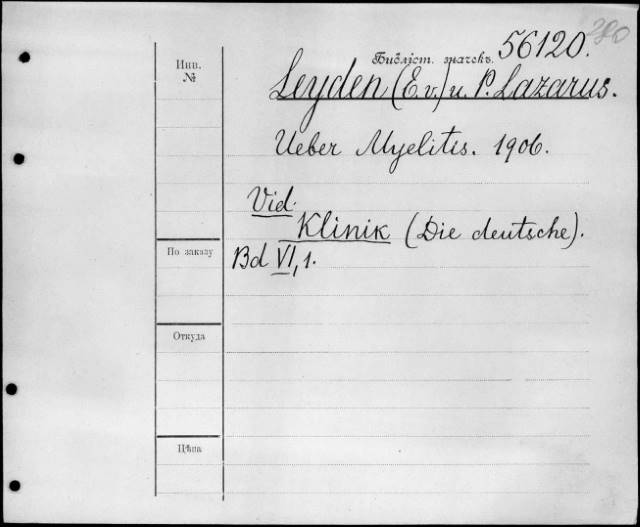 280
Инв.
№
Библіот. значекъ 56120.
Leyden (E. v.) u. P. Lazarus.
Ueber Myelitis. 1906.
Vid.
Klinik (Die deutsche).
По заказу
Bd VI, 1.
Откуда
Цѣна